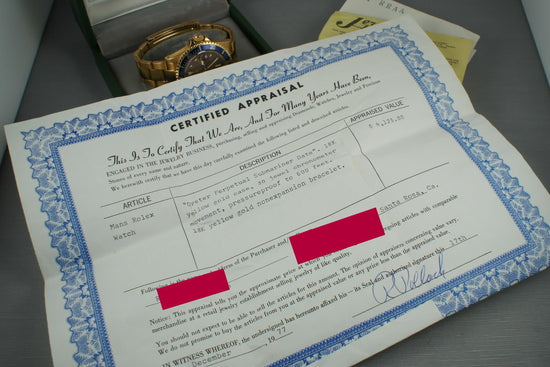 CERTIFIED APPRAISAL
This Is To Certify That We Are, And For Many Years Have Been,
ENGAGED IN THE JEWELRY BUSINESS, purchasing, selling and appraising Diamonds, Watches, Jewelry and Precious
Stones of every name and nature.
We herewith certify that we have this day carefully examined the following listed and described articles.
ARTICLE
DESCRIPTION
APPRAISED VALUE
Mans Rolex
Watch
"Oyster Perpetual Submariner Date", 18K
yellow gold case, jewel chronometer
movement, pressureproof to 600 feet.
18K yellow gold nonexpansion bracelet,
$ 4,125.00
Following is the address of the Purchaser and
Santa Rosa, Ca.
Notice: This appraisal tells you the approximate price at which going articles with comparable
merchandise at a retail jewelry establishment selling jewelry of like quality.
You should not expect to be able to sell the articles for this amount. The opinion of appraisers concerning value vary.
We do not promise to buy the articles from you at the appraised value or any price less than the appraised value.
IN WITNESS WHEREOF, the undersigned has hereunto affixed his seal and authorized signature this 17th
December 1977